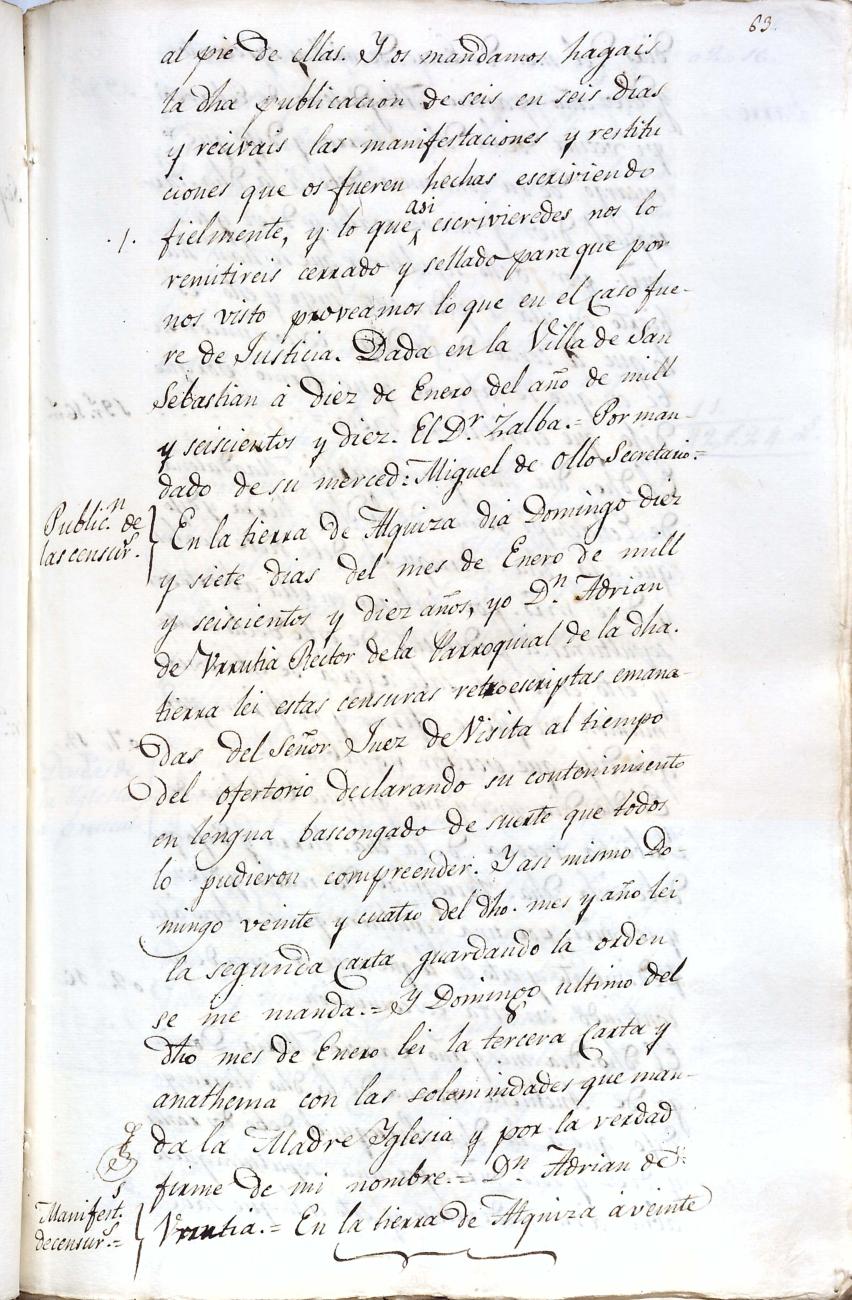 63.
al pie de ellas. Y os mandamos hagais
la dha publicacion de seis en seis dias
y recivais las manifestaciones y restitu
ciones que os fueren hechas escriviendo
fielmente, y lo que asi escrivieredes nos lo
remitireis cerrado y sellado para que por
nos visto proveamos lo que en el caso fue-
re de Justicia. Dada en la Villa de San
Sebastian á diez de Enero del año de mill
y seiscientos y diez. El Dr. Zalba.= Por man-
dado de su merced: Miguel de Ollo Secretario=
Public.n de
las censur.s
En la tierra de Alquiza dia Domingo diez
y siete dias del mes de Enero de mill
y seiscientos y diez años, yo Dn. Adrian
de Vrrutia Rector de la Parroquial de la dha.
tierra lei estas censuras retroescriptas emana-
das del Señor Juez de Visita al tiempo
del ofertorio declarando su contenimiento
en lengua bascongado de suerte que todos
lo pudieron compreender. Y asi mismo Do-
mingo veinte y cuatro del dho. mes y año lei
la segunda Carta guardando la orden
se me manda.= Y Domingo ultimo del
dho mes de Enero lei la tercera Carta y
anathema con las solemnidades que man-
da la Madre Iglesia y por la verdad
firme de mi nombre.= Dn. Adrian de
Manifest.s
de censur.s=
Vrrutia.= En la tierra de Alquiza á veinte